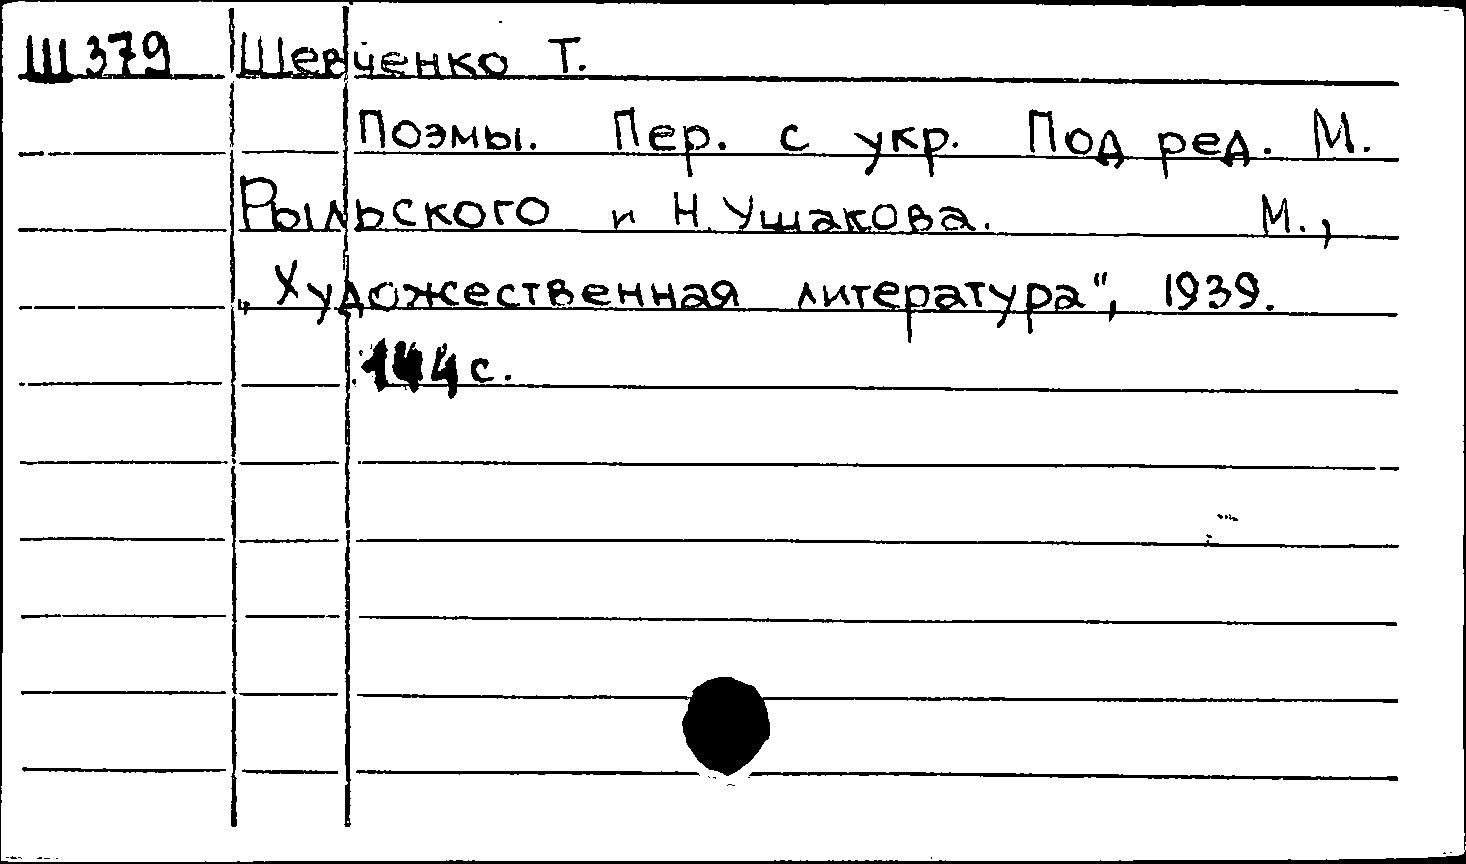 Ш379 Шевченко Т.
Поэмы. Пер. с укр. Под ред. М.
Рыльского и Н. Ушакова. М.,
„Художественная литература“, 1939.
144 с.